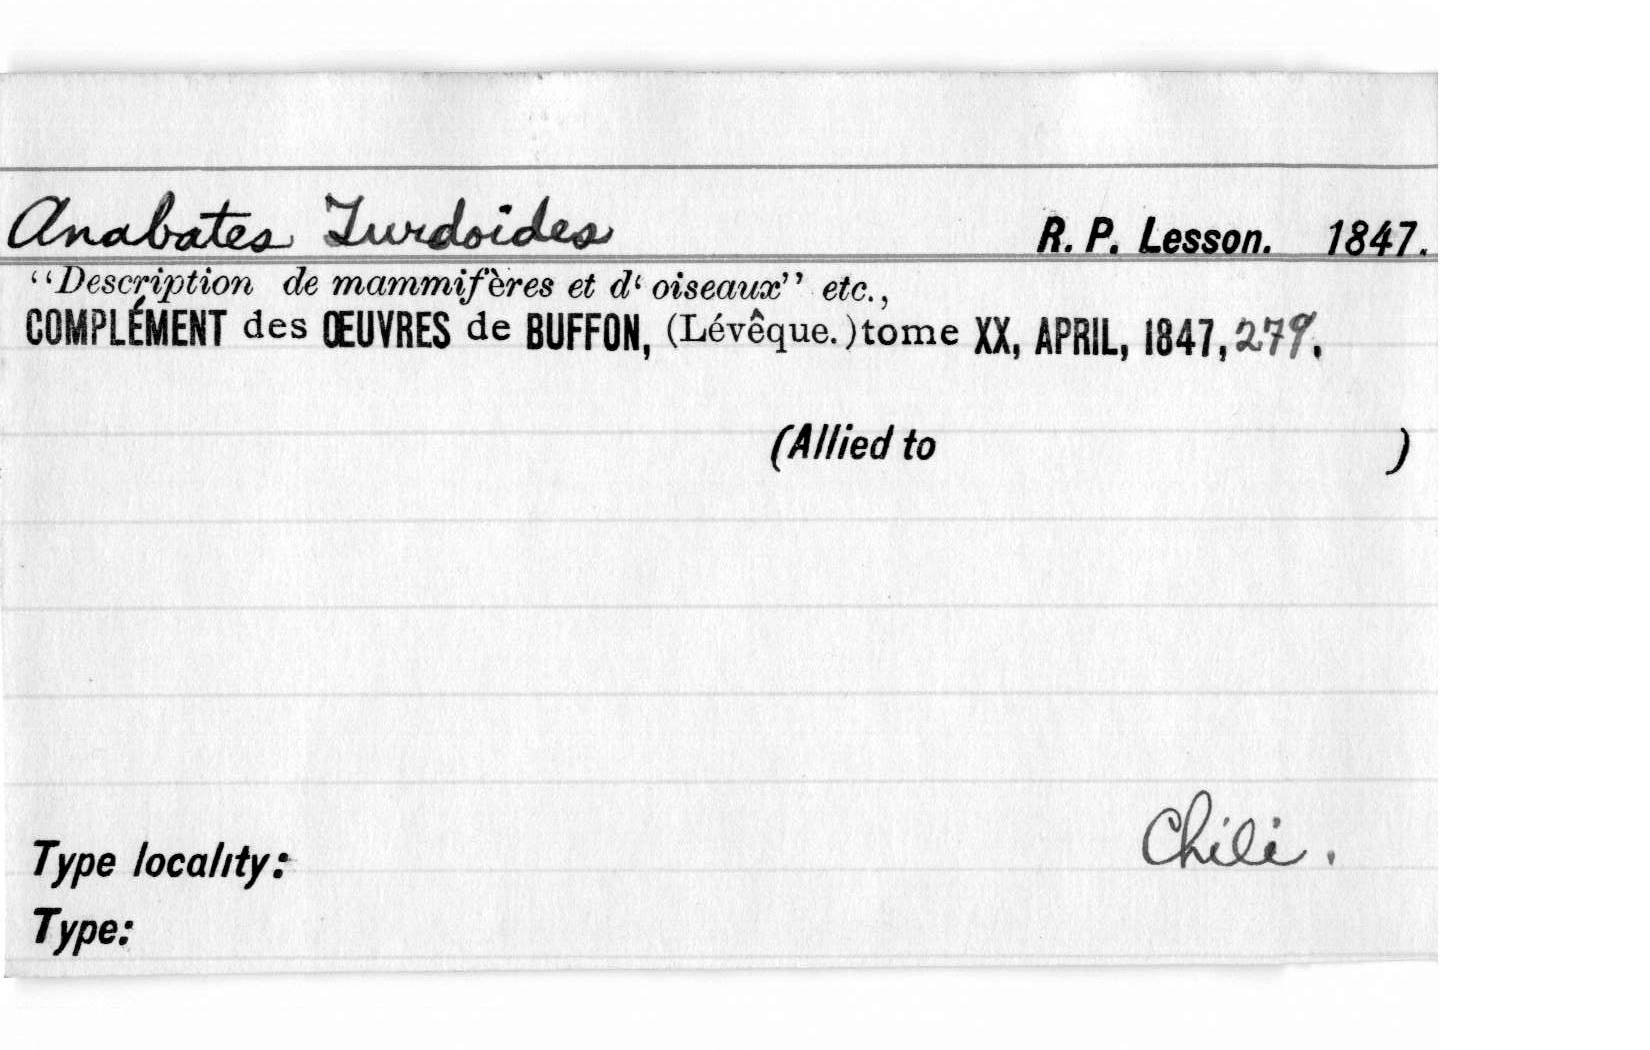 Anabates Turdoides R. P. Lesson. 1847.
“Description de mammifères et d‘ oiseaux” etc.,
COMPLÉMENT des ŒUVRES de BUFFON, (Lévêque.) tome XX, APRIL, 1847, 279.
(Allied to )
Chili.
Type locality:
Type: